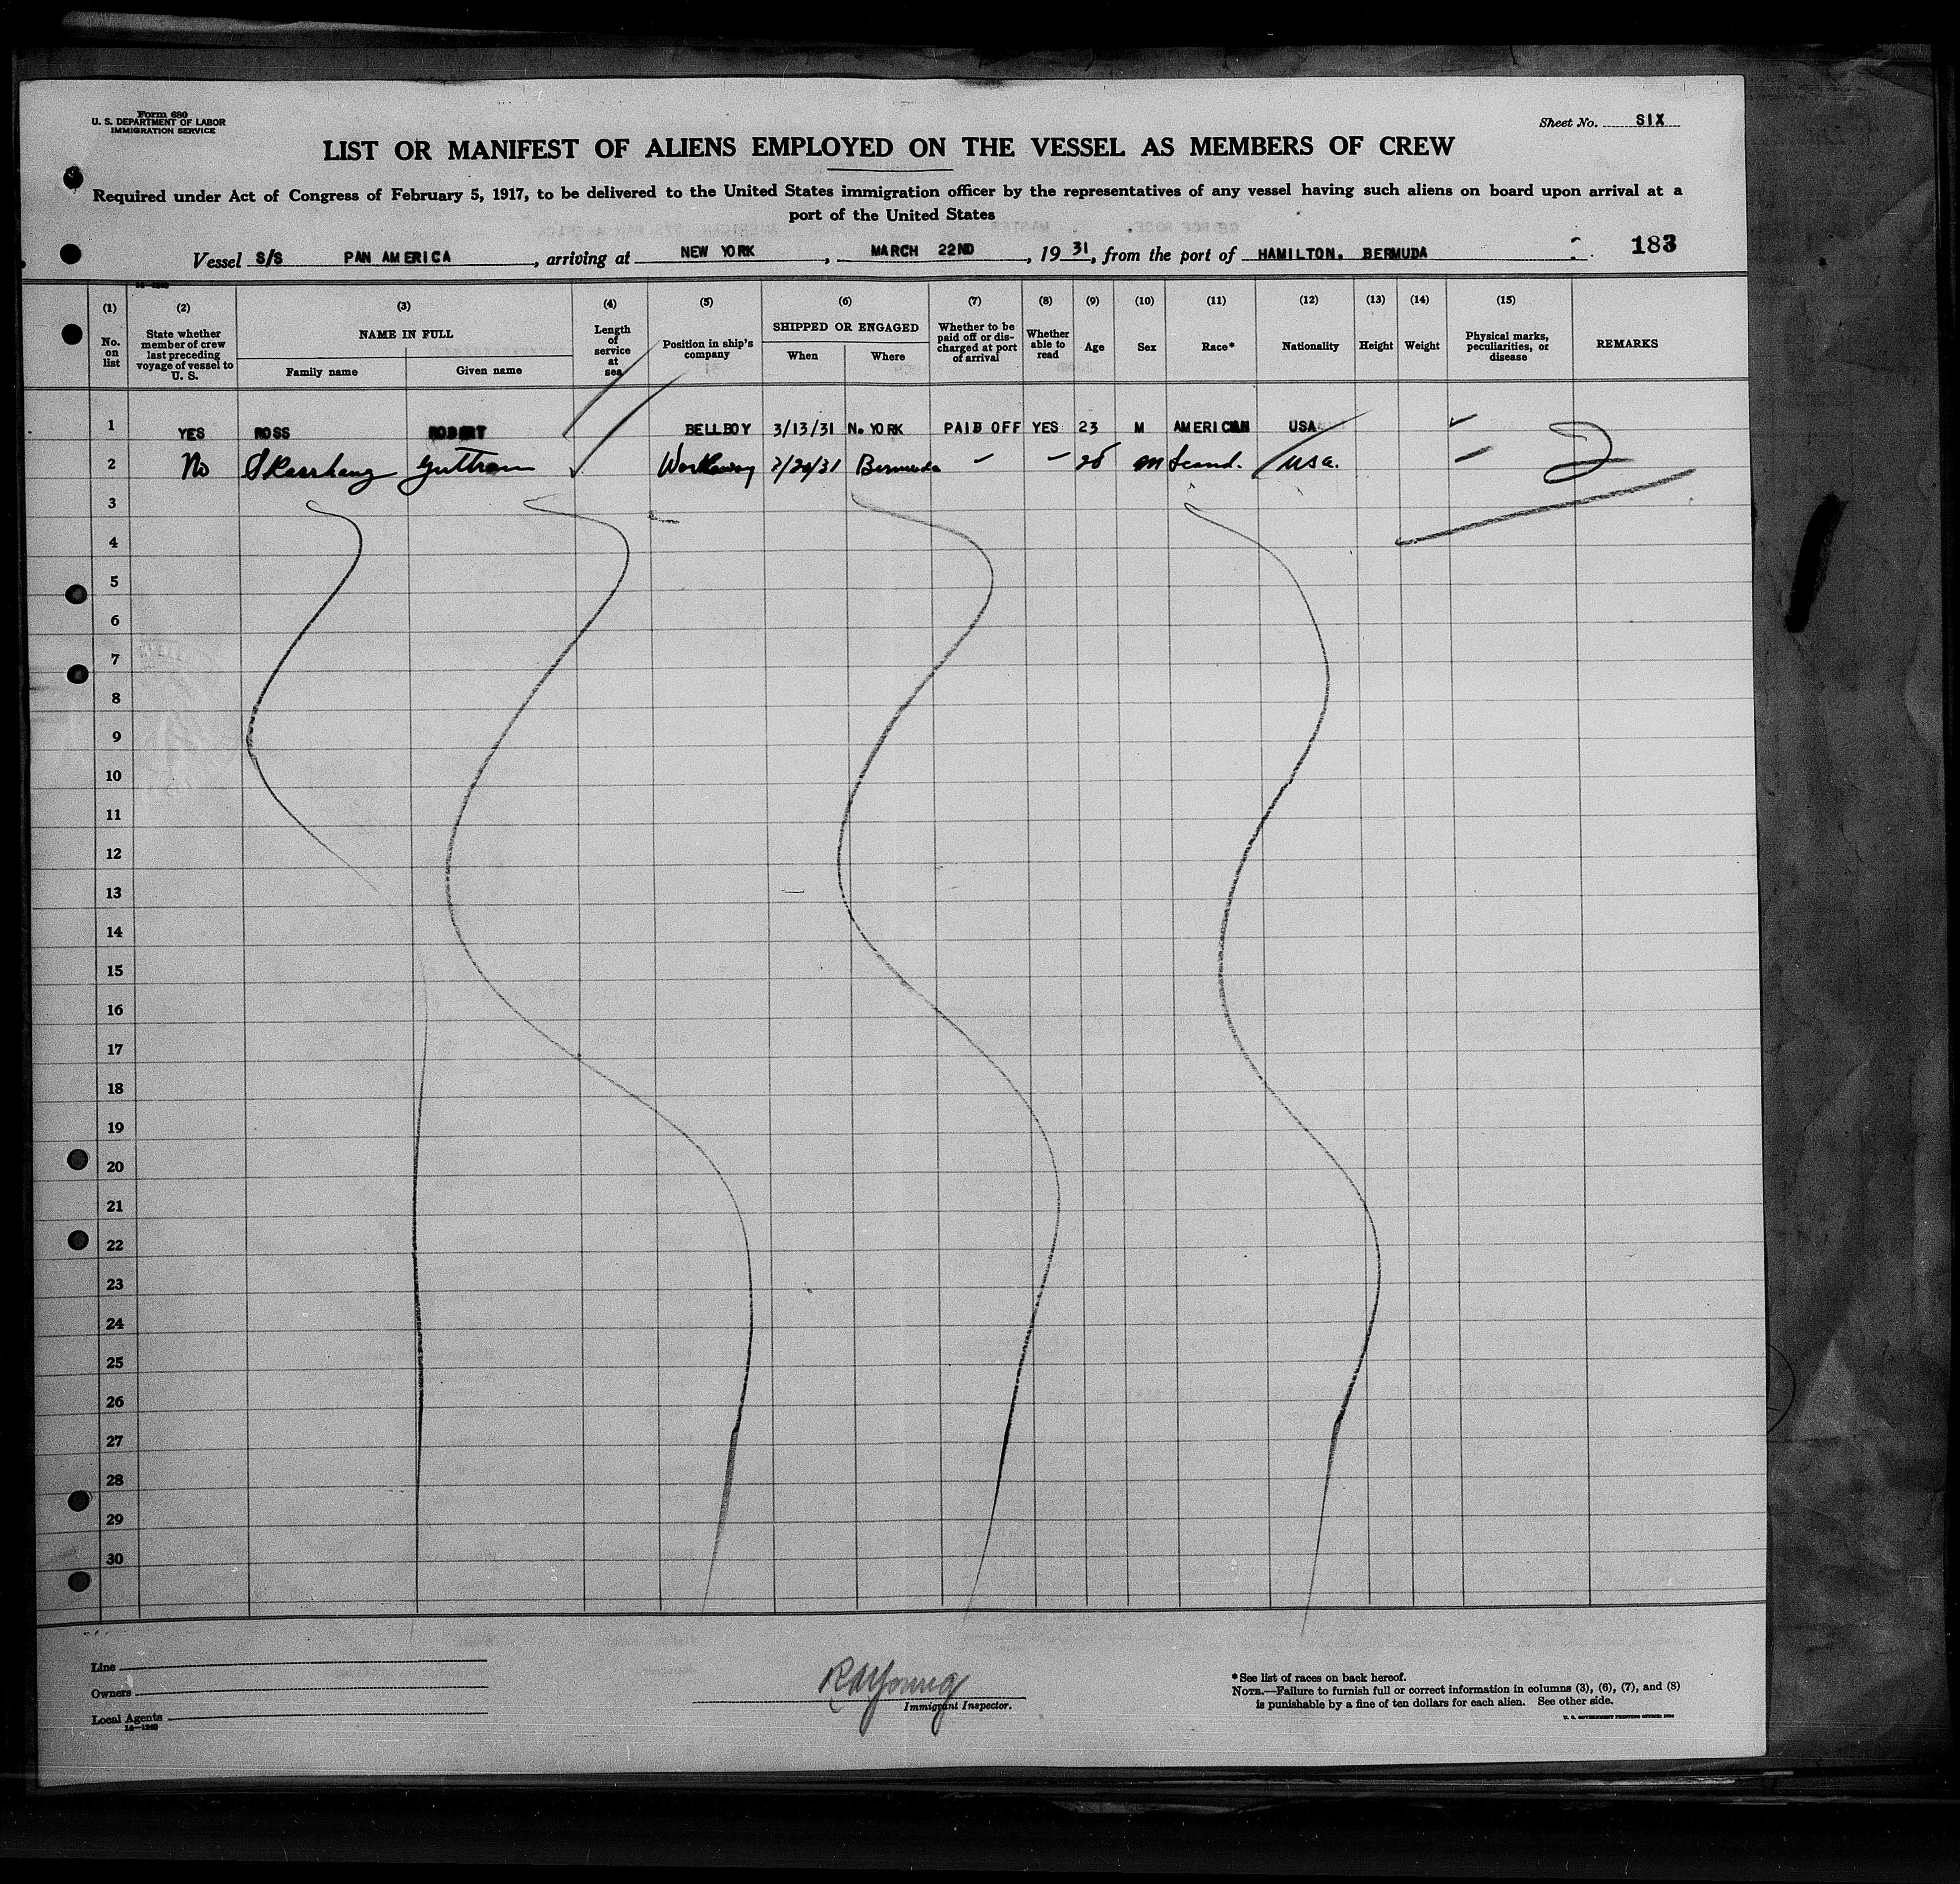 Form 680
U. S. DEPARTMENT OF LABOR
IMMIGRATION SERVICE
Sheet No. SIX
LIST OR MANIFEST OF ALIENS EMPLOYED ON THE VESSEL AS MEMBERS OF CREW
Required under Act of Congress of February 5, 1917, to be delivered to the United States immigration officer by the representatives of any vessel having such aliens on board upon arrival at a
port of the United States
Vessel S/S PAN AMERICA, arriving at NEW YORK, MARCH 22ND, 1931, from the port of HAMILTON, BERMUDA
183
(1) (2) (3) (4) (5) (6) (7) (8) (9) (10) (11) (12) (13) (14) (15)
No. on list
State whether member of crew last preceding voyage of vessel to U. S.
NAME IN FULL
Family name
Given name
Length of service at sea
Position in ship's company
SHIPPED OR ENGAGED
When
Where
Whether to be paid off or discharged at port of arrival
Whether able to read
Age
Sex
Race*
Nationality
Height
Weight
Physical marks, peculiarities, or disease
REMARKS
1 YES ROSS ROBERT BELLBOY 3/13/31 N. YORK PAID OFF YES 23 M AMERICAN USA
2 No Workaway /20/31 Bermuda M Scand. USA.
3
4
5
6
7
8
9
10
11
12
13
14
15
16
17
18
19
20
21
22
23
24
25
26
27
28
29
30
Line
Owners
Local Agents
14—1240
Young
Immigrant Inspector.
*See list of races on back hereof.
NOTE.—Failure to furnish full or correct information in columns (3), (6), (7), and (8)
is punishable by a fine of ten dollars for each alien. See other side.